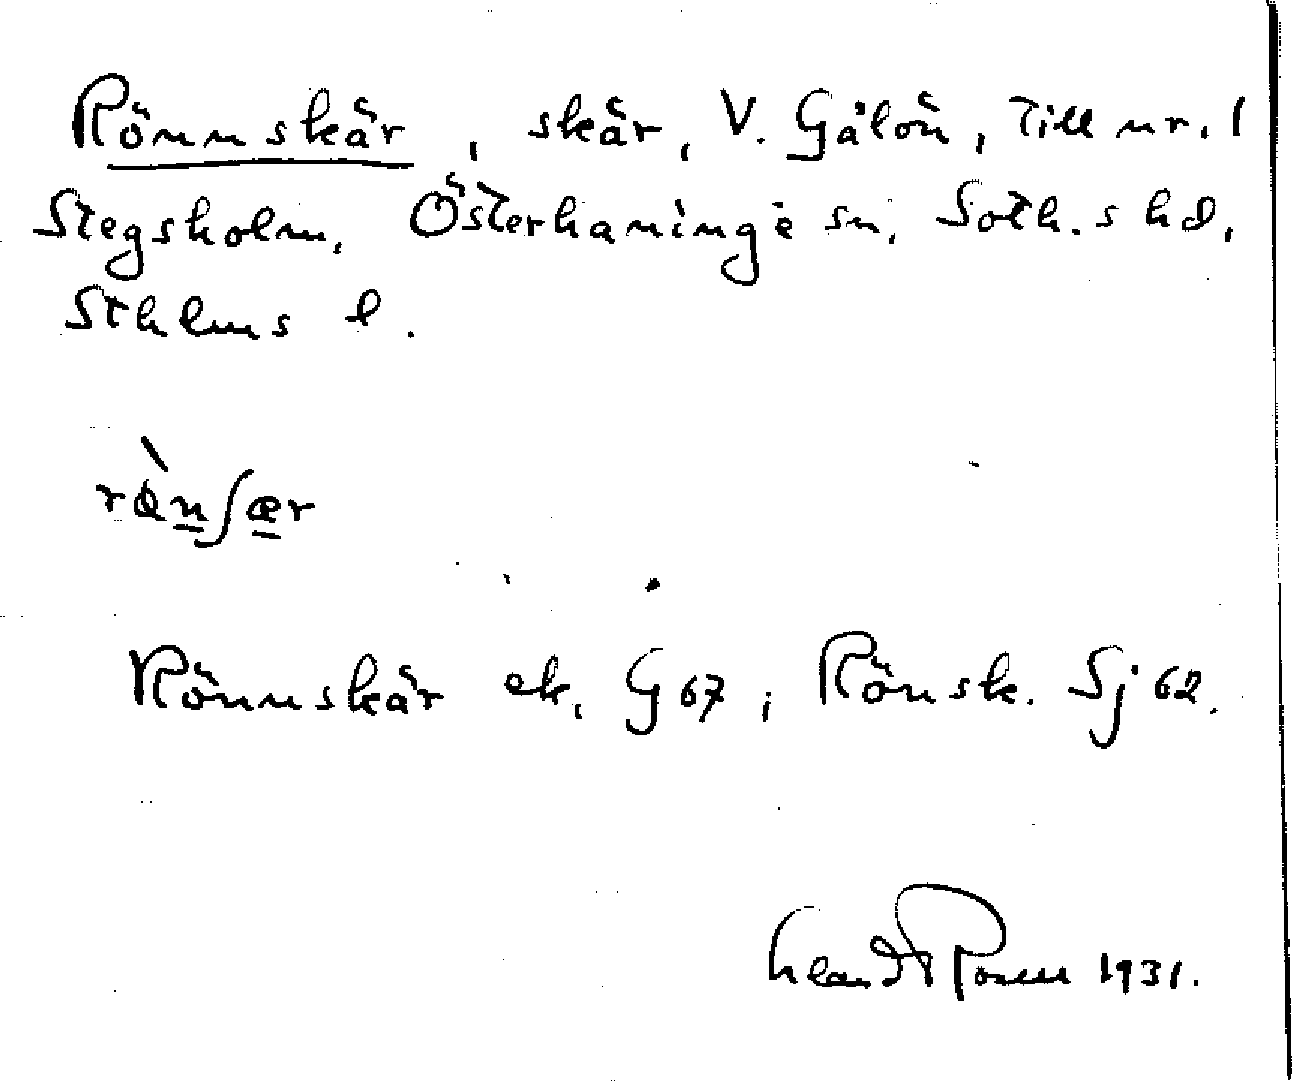 Rönnskär, skär, V. Gålön, Till nr. 1
Stegsholm, Österhaninge sn, Soth.s hd,
Sthlms l.
Rönnskär ek, G67; Rönsk. Sj 62.
1931.